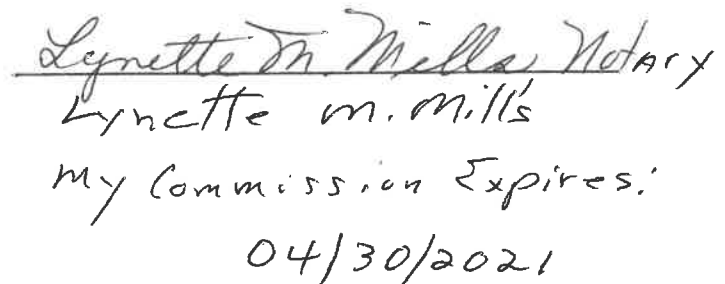 Lynette M. Mills Notary
Lynette m. Mill's
my Commission Expires:
04/30/2021